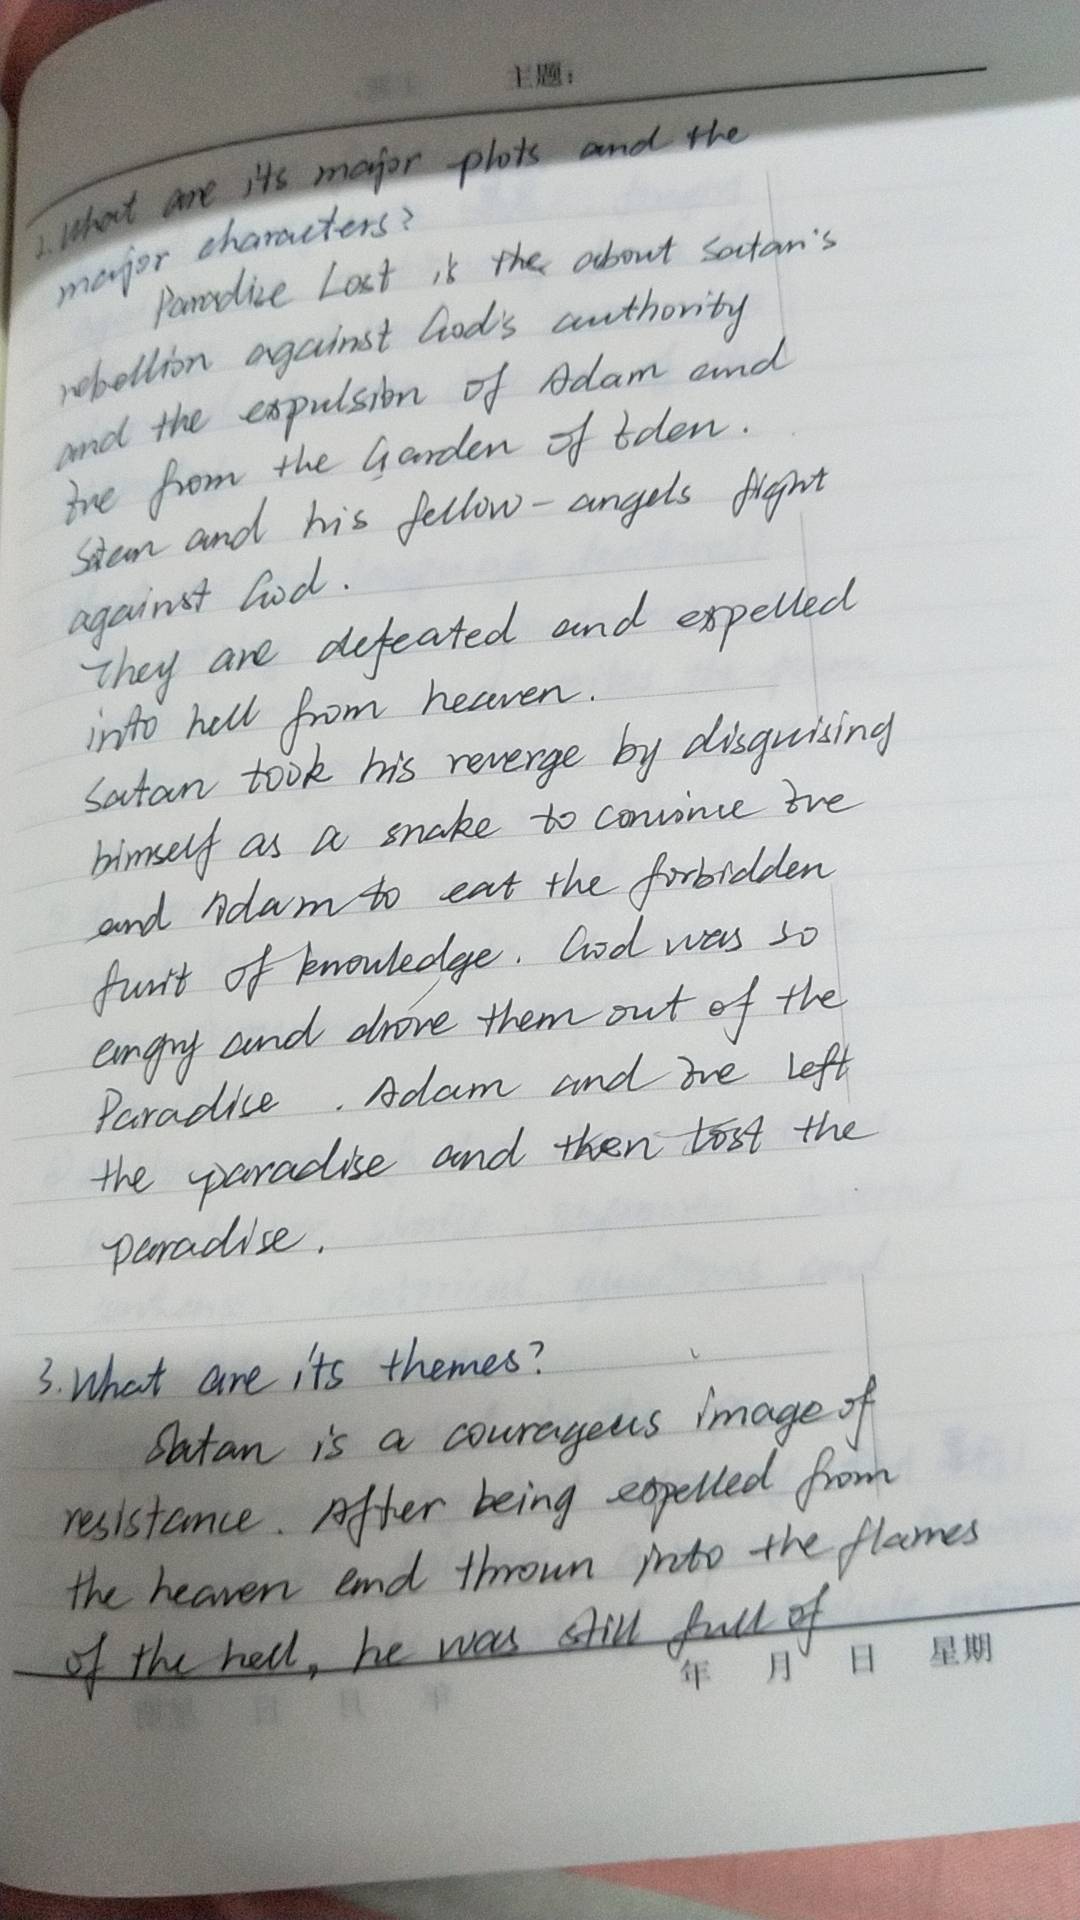 主题:
2. What are its major plots and the
major characters?
Paradise Lost is the about Satan's
rebellion against God's authority
and the expulsion of Adam and
Eve from the Garden of Eden.
Satan and his fellow-angels fight
against God.
They are defeated and expelled
into hell from heaven.
Satan took his reverge by disguising
himself as a snake to convince Eve
and Adam to eat the forbidden
fruit of knowledge. God was so
angry and drove them out of the
Paradise. Adam and Eve left
the paradise and then lost the
paradise.
3. What are its themes?
Satan is a courageous image of
resistance. After being expelled from
the heaven and thrown into the flames
of the hell, he was still full of
年 月 日 星期